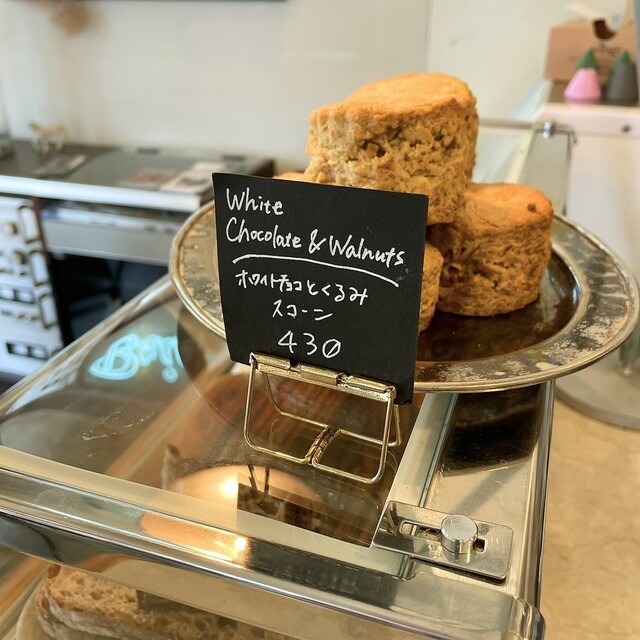 White
Chocolate & Walnuts
ホワイトチョコとくるみ
スコーン
430